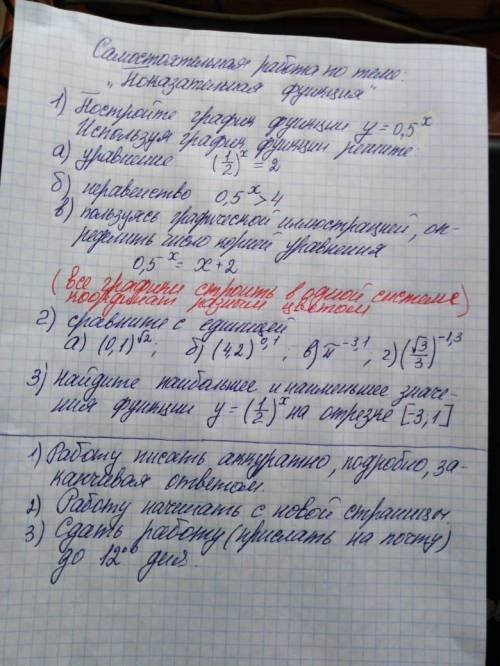 Самостоятельная работа по теме:
"Показательная функция"
1) Постройте график функции y = 0,5^x
Используя график функции решите:
а) уравнение (1/2)^x = 2
б) неравенство 0,5^x > 4
в) пользуясь графической иллюстрацией, оп-
ределить число корней уравнения
0,5^x = x + 2
(все графики строить в одной системе
координат разным цветом)
2) сравните с единицей
а) (0,1)^√2; б) (4,2)^0,1; в) π^-3,1; г) (√3/3)^-1,3
3) Найдите наибольшее и наименьшее значе-
ния функции y = (1/2)^x на отрезке [-3, 1]
1) Работу писать аккуратно, подробно, за-
канчивая ответом.
2) Работу начинать с новой страницы.
3) Сдать работу (прислать на почту)
до 12°° дня.